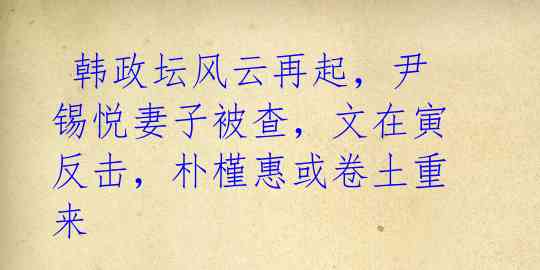 韩政坛风云再起，尹
锡悦妻子被查，文在寅
反击，朴槿惠或卷土重
来